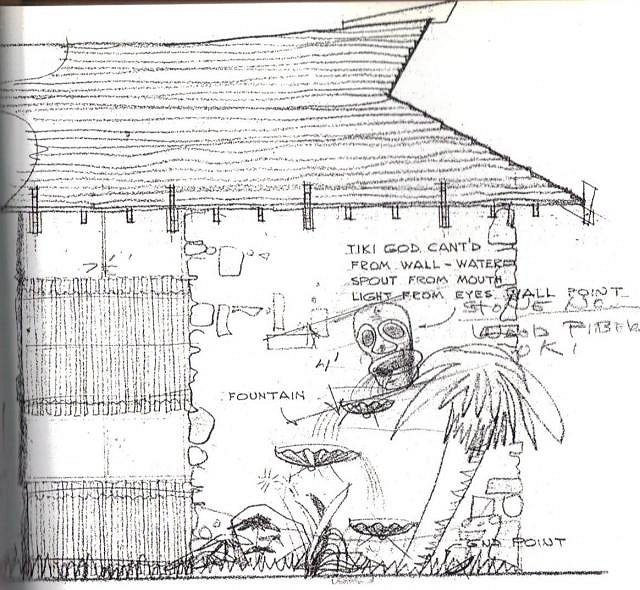 TIKI GOD CANT'D
FROM WALL - WATER
SPOUT FROM MOUTH
LIGHT FROM EYES
WALL POINT
4'
FOUNTAIN
END POINT